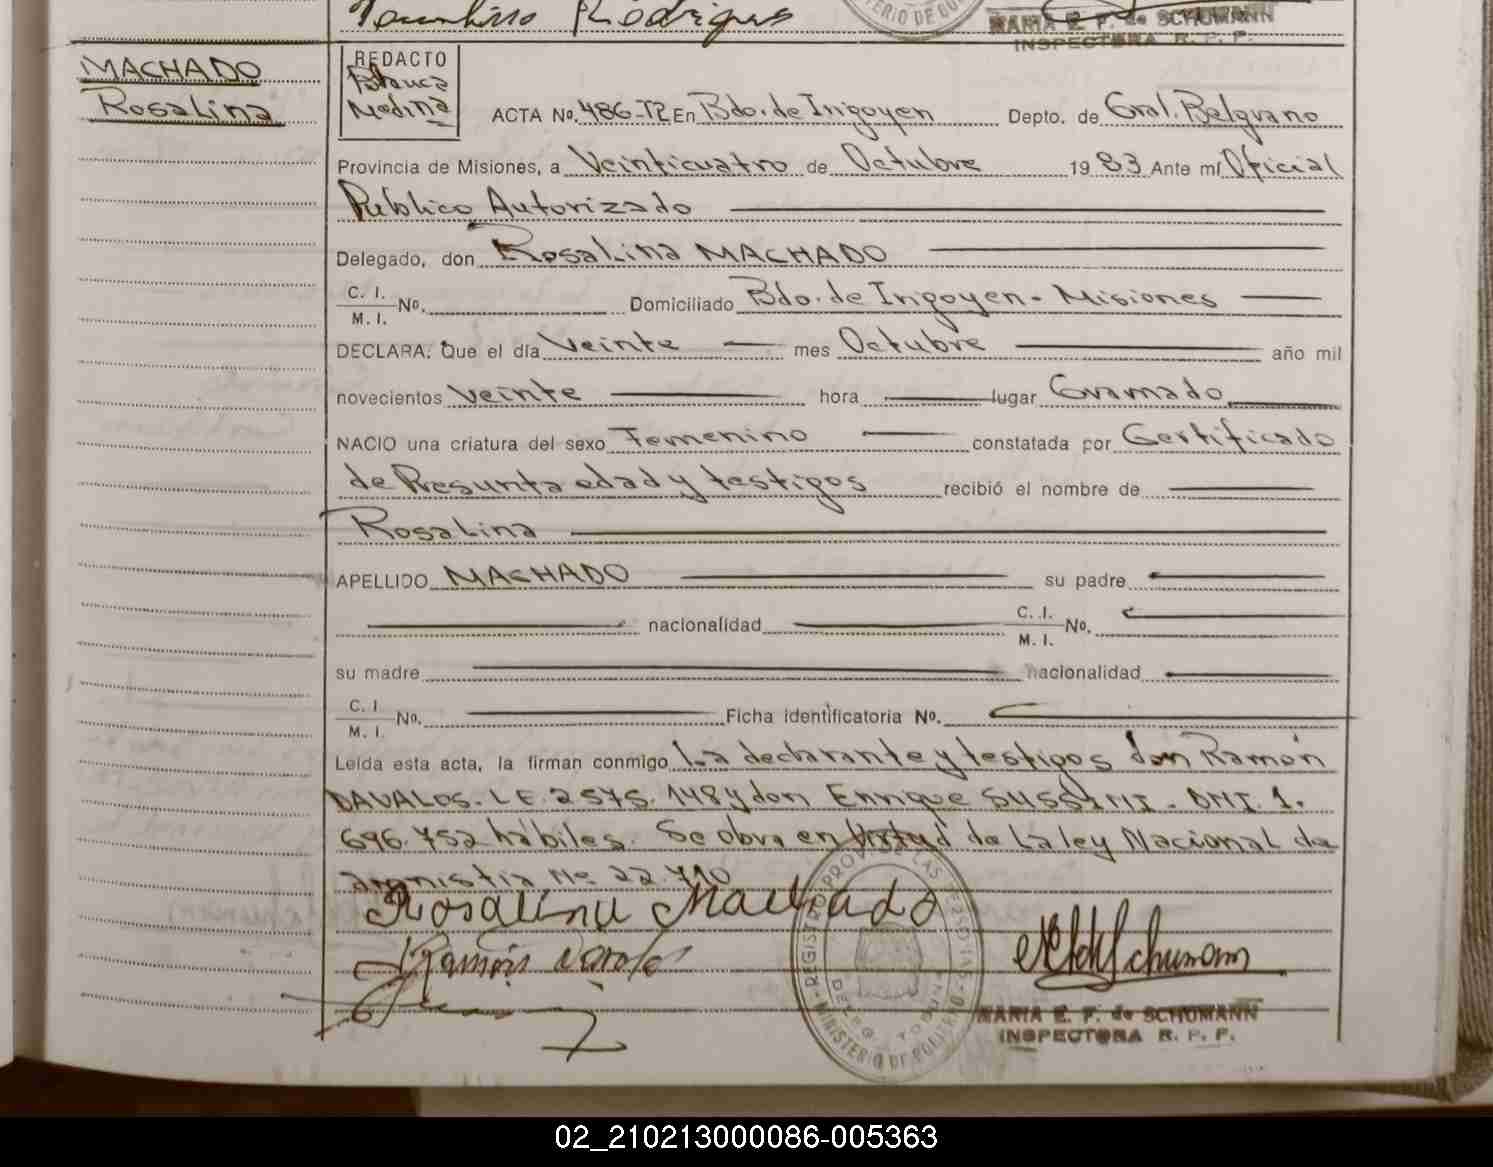 Rodrigues
MINISTERIO DE GOB
MARIA E. F. de SCHUMANN
INSPECTORA R. P. P.
MACHADO
Rosalina
REDACTO
Blanca
Medina
ACTA No. 486-T2 En Bdo. de Irigoyen Depto. de Gral. Belgrano
Provincia de Misiones, a Veinticuatro de Octubre 1983 Ante mí Oficial
Público Autorizado
Delegado, don Rosalina MACHADO
C. I.
M. I. No. Domiciliado Bdo. de Irigoyen - Misiones
DECLARA: Que el día Veinte mes Octubre año mil
novecientos veinte hora lugar Gramado
NACIO una criatura del sexo Femenino constatada por Certificado
de Presunta edad y testigos recibió el nombre de
Rosalina
APELLIDO MACHADO su padre
nacionalidad C. I.
M. I. No.
su madre nacionalidad
C. I
M. I. No. Ficha identificatoria No.
Leída esta acta, la firman conmigo la declarante y testigos don Ramón
DAVALOS. L.E. 2575.148 y don Enrique SUSSINI. DNI. 1.
696.752 hábiles. Se obra en Virtud de La ley Nacional de
amnistia No 22.710
Rosalina Machado
Ramón Davalos
Schumann
REGISTRO PROV. DE LAS PERSONAS
MINISTERIO DE GOBIERNO
MARIA E. F. de SCHUMANN
INSPECTORA R. P. P.
02_210213000086-005363